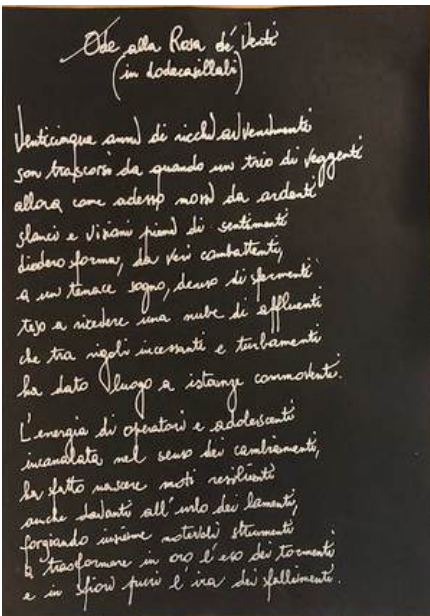 Ode alla Rosa de' Venti
(in dodecasillabi)
Venticinque anni di ricchi avvenimenti
son trascorsi da quando un trio di veggenti
allora come adesso mossi da ardenti
slanci e visioni pieni di sentimenti
diedero forma, da veri combattenti,
a un tenace sogno, denso di fermenti
teso a ricedere una nube di affluenti
che tra rigoli incessanti e turbamenti
ha dato luogo a istanze commoventi.
L'energia di operatori e adolescenti
incanalata nel senso dei cambiamenti,
ha fatto nascere moti resilienti
anche davanti all'urlo dei lamenti,
forgiando insieme notevoli strumenti
a trasformare in oro l'eso dei tormenti
e in sfiori puri l'ira dei fallimenti.